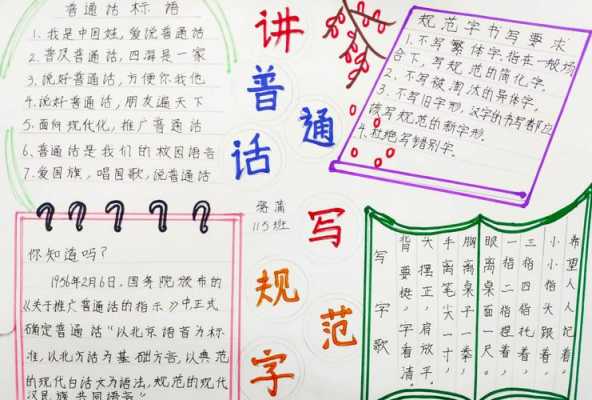 普通话标语
1.我是中国娃,爱说普通话
2.普及普通话,四海是一家
3.说好普通话,方便你我他
4.说好普通话,朋友遍天下
5.面向现代化,推广普通话
6.普通话是我们的校园语言
7.爱国旗,唱国歌,说普通话
讲普通话
写规范字
115班
规范字书写要求
1.不写繁体字.指在一般场
合下,写规范的简化字.
2.不写被淘汰的异体字.
3.不写旧字形,汉字的书写都应
该写规范的新字形.
4.杜绝写错别字.
你知道吗?
1956年2月6日,国务院颁布的
《关于推广普通话的指示》中正式
确定普通话“以北京语音为标
准,以北方话为基础方言,以典范
的现代白话文为语法,规范的现代
汉民族共同语言”
写字歌
希望人人记着,
小小指头跟着,
三指四指托着,
一指二指捏着,
眼离桌面一尺,
胸离桌子一拳,
手离笔尖一寸,
大摆正,肩放平,
背要挺,字看清,